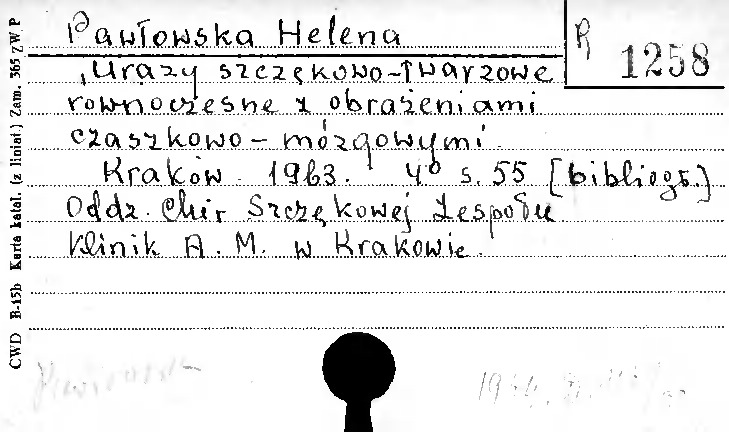 Pawłowska Helena
R 1258
Urazy szczękowo-twarzowe
rownoczesne z obrażeniami
czaszkowo - mózgowymi.
Kraków. 1963. 4° s. 55 [bibliogr.]
Oddz. Chir Szczękowej Zespołu
Klinik A. M. w Krakowie.
CWD B-15b Karta katal. (z liniat.) Zam. 365 ZWP